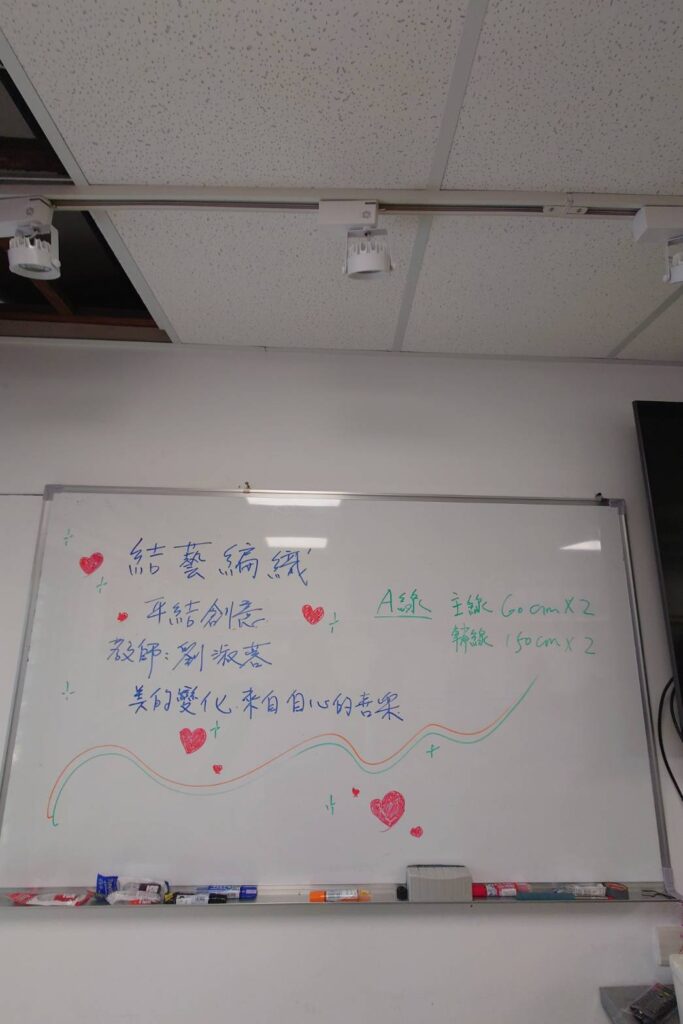 結藝編織
平結創意
教師:劉淑蓉
美的變化.來自自心的喜樂
A線 主線 60cm X 2
輔線 150cm X 2